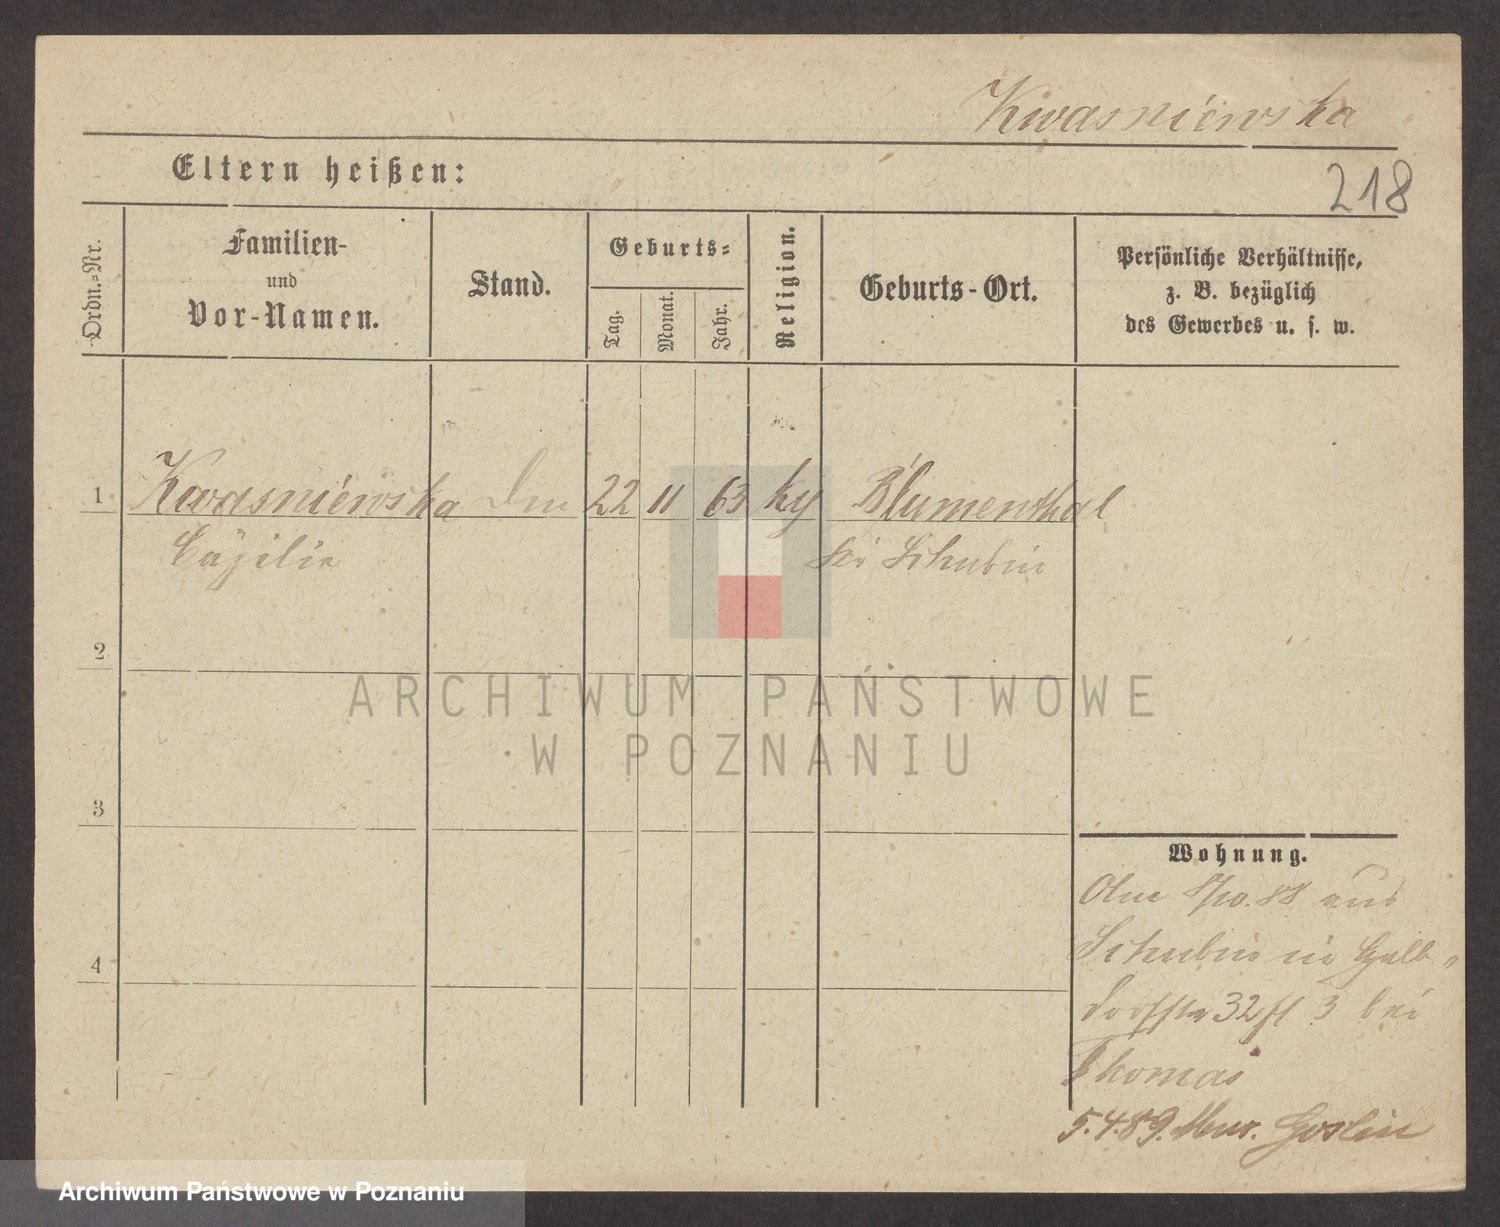 Kwasniewska
Eltern heißen:
218
Ordn.-Nr.
Familien-
und
Vor-Namen.
Stand.
Geburts-
Tag.
Monat.
Jahr.
Religion.
Geburts-Ort.
Persönliche Verhältnisse,
z. B. bezüglich
des Gewerbes u. s. w.
1 Kwasniewska 22 11 63 Blumenthal
Cäzilie bei Schubin
2
ARCHIWUM PAŃSTWOWE
W POZNANIU
3
Wohnung.
88 aus
4
Schubin in Halb-
dorfstr 32 3 bei
Thomas
5.4.89. Mur. Goslin
Archiwum Państwowe w Poznaniu